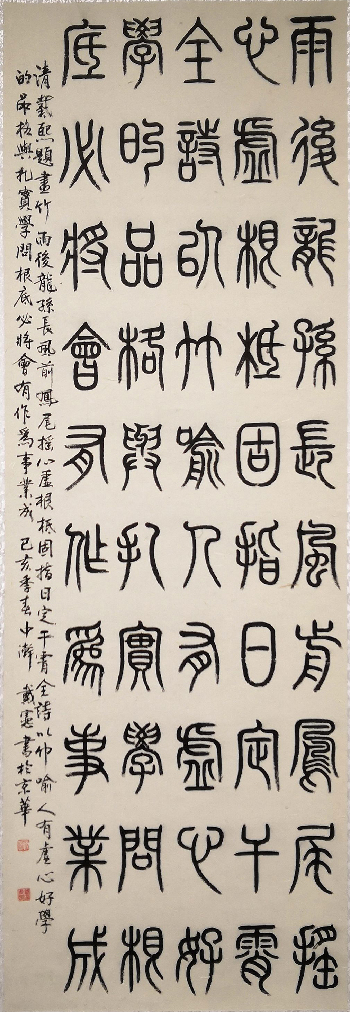 雨後龍孫長風前鳳尾搖
心虛根柢固指日定干霄
全詩以竹喻人有虛心好
學的品格與扎實學問根
底必將會有作為事業成
清戴熙題畫竹 雨後龍孫長風前鳳尾搖心虛根柢固指日定干霄全詩以竹喻人有虛心好學
的品格與扎實學問根底必將會有作為事業成 己亥季春中澣 戴憲書於京華